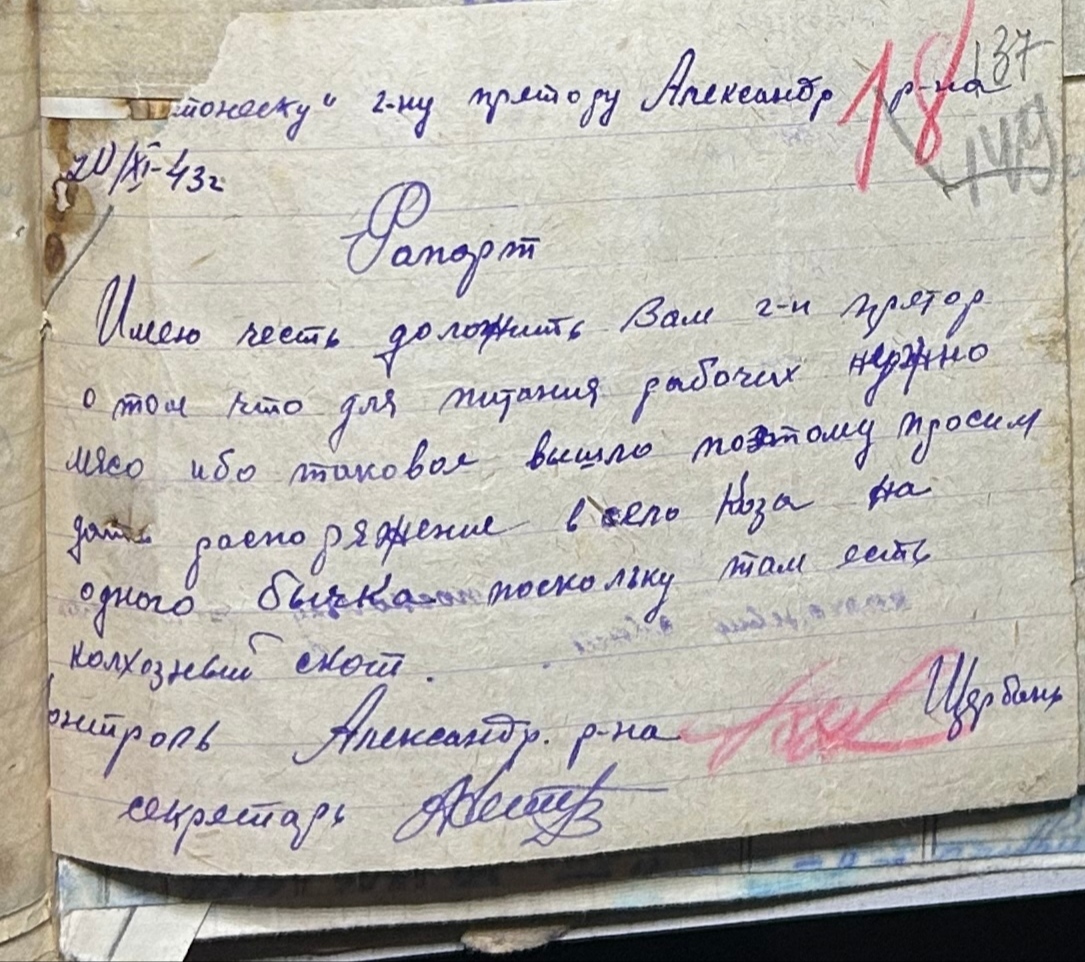 "г-ну претору Александр р-на
18
137
149
20/XI-43г
Рапорт
Имею честь доложить Вам г-н претор
о том что для питания рабочих нужно
мясо ибо таковое вышло поэтому просим
дать распоряжение в село Коза на
одного бычка поскольку там есть
колхозный скот.
онтроль Александр. р-на Щербань
секретарь